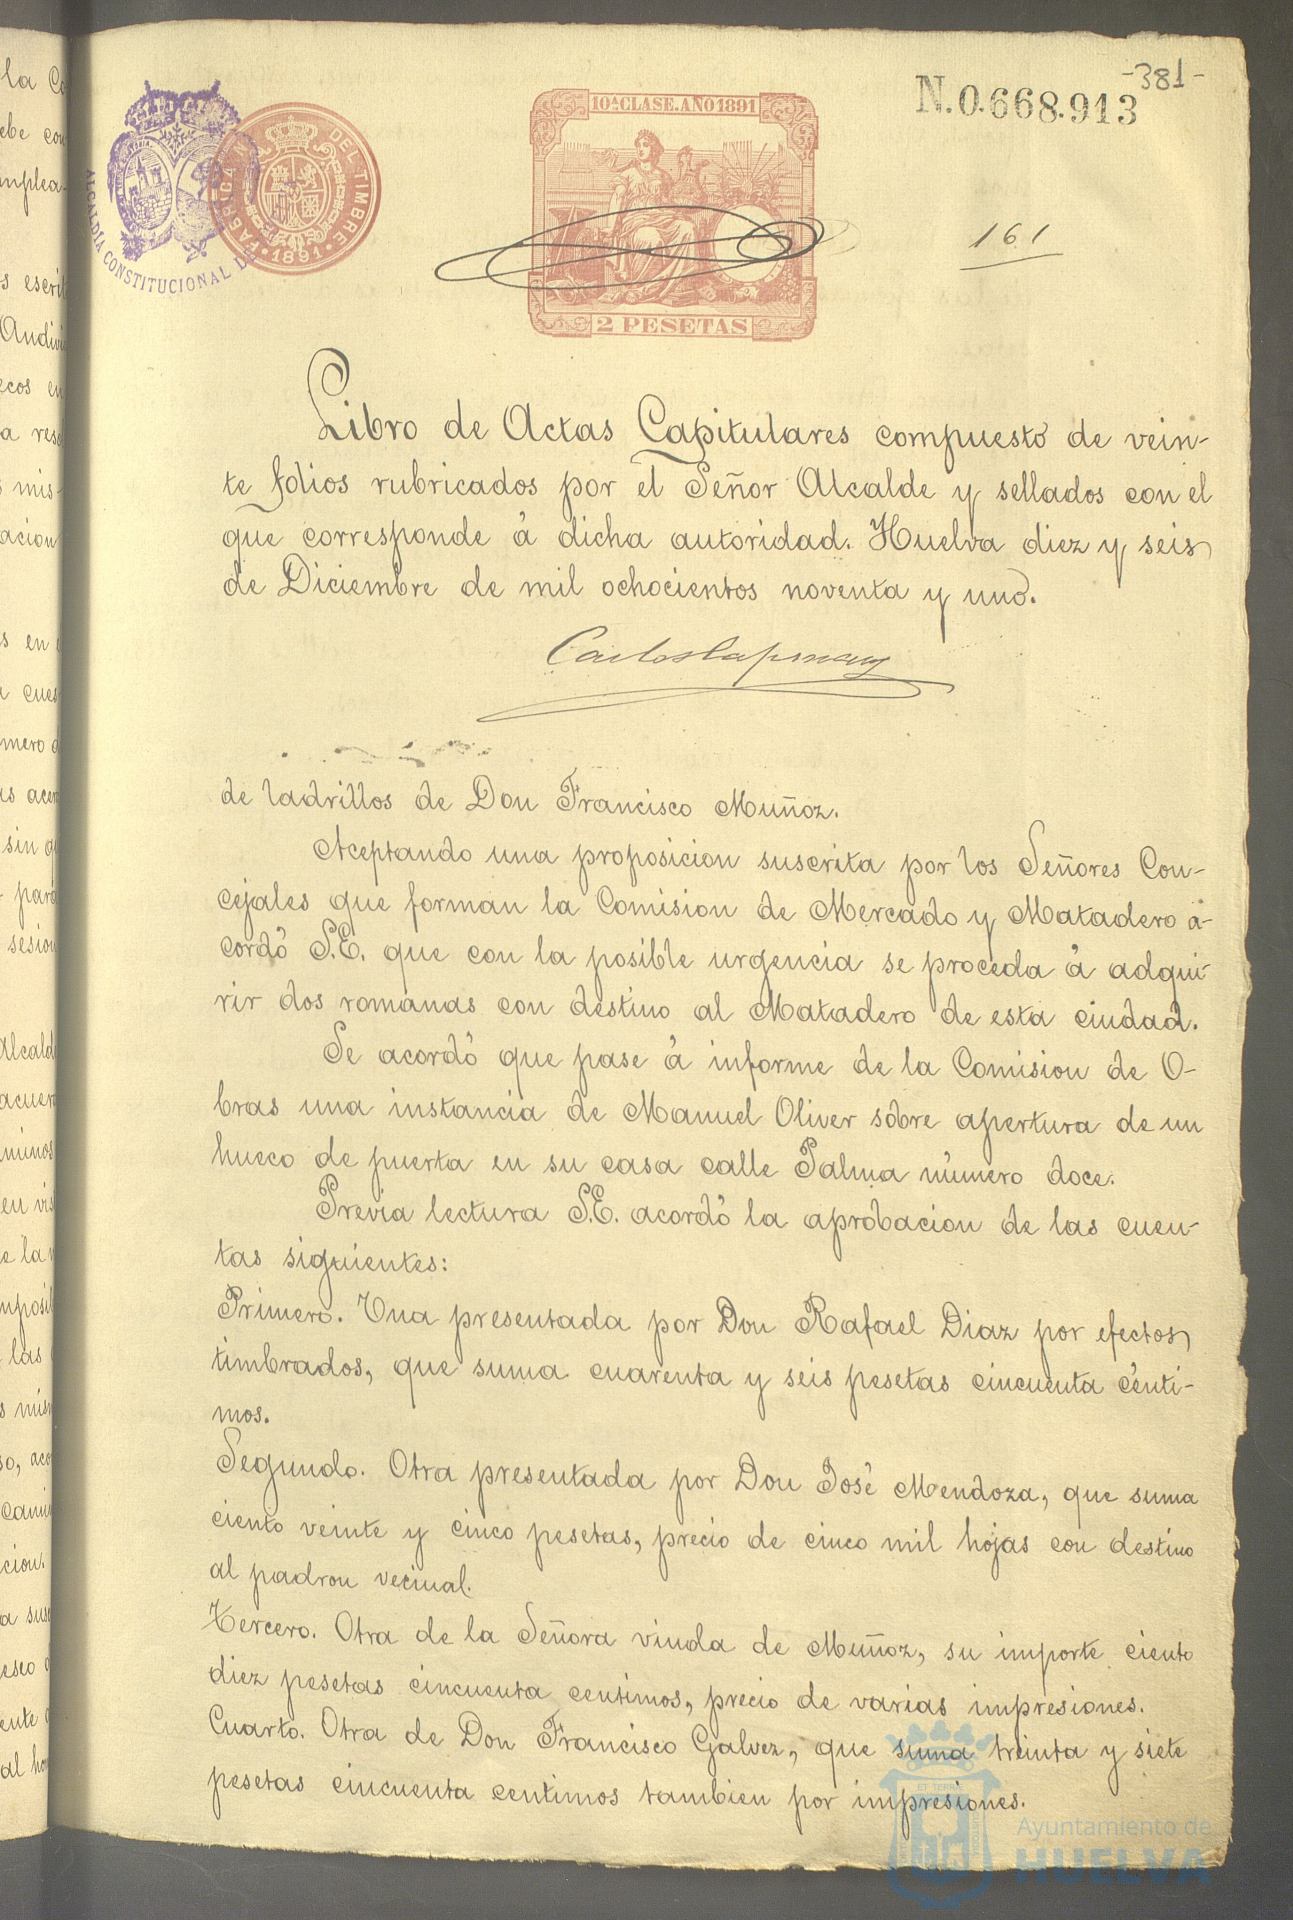 -381-
10ª CLASE. AÑO 1891
N.0.668.913
FABRICA N. DEL TIMBRE
1891
ALCALDÍA CONSTITUCIONAL DE
161
2 PESETAS
Libro de Actas Capitulares compuesto de vein-
te folios rubricados por el Señor Alcalde y sellados con el
que corresponde á dicha autoridad. Huelva diez y seis
de Diciembre de mil ochocientos noventa y uno.
de ladrillos de Don Francisco Muñoz.
Aceptando una proposicion suscrita por los Señores Con-
cejales que forman la Comision de Mercado y Matadero a-
cordó S.E. que con la posible urgencia se proceda á adqui-
rir dos romanas con destino al Matadero de esta ciudad.
Se acordó que pase á informe de la Comision de O-
bras una instancia de Manuel Oliver sobre apertura de un
hueco de puerta en su casa calle Palma número doce.
Previa lectura S.E. acordó la aprobacion de las cuen-
tas siguientes:
Primero. Una presentada por Don Rafael Diaz por efectos
timbrados, que suma cuarenta y seis pesetas cincuenta cénti-
mos.
Segundo. Otra presentada por Don José Mendoza, que suma
ciento veinte y cinco pesetas, precio de cinco mil hojas con destino
al padron vecinal.
Tercero. Otra de la Señora viuda de Muñoz, su importe ciento
diez pesetas cincuenta centimos, precio de varias impresiones.
Cuarto. Otra de Don Francisco Galvez, que suma treinta y siete
pesetas cincuenta centimos tambien por impresiones.
Ayuntamiento de
HUELVA